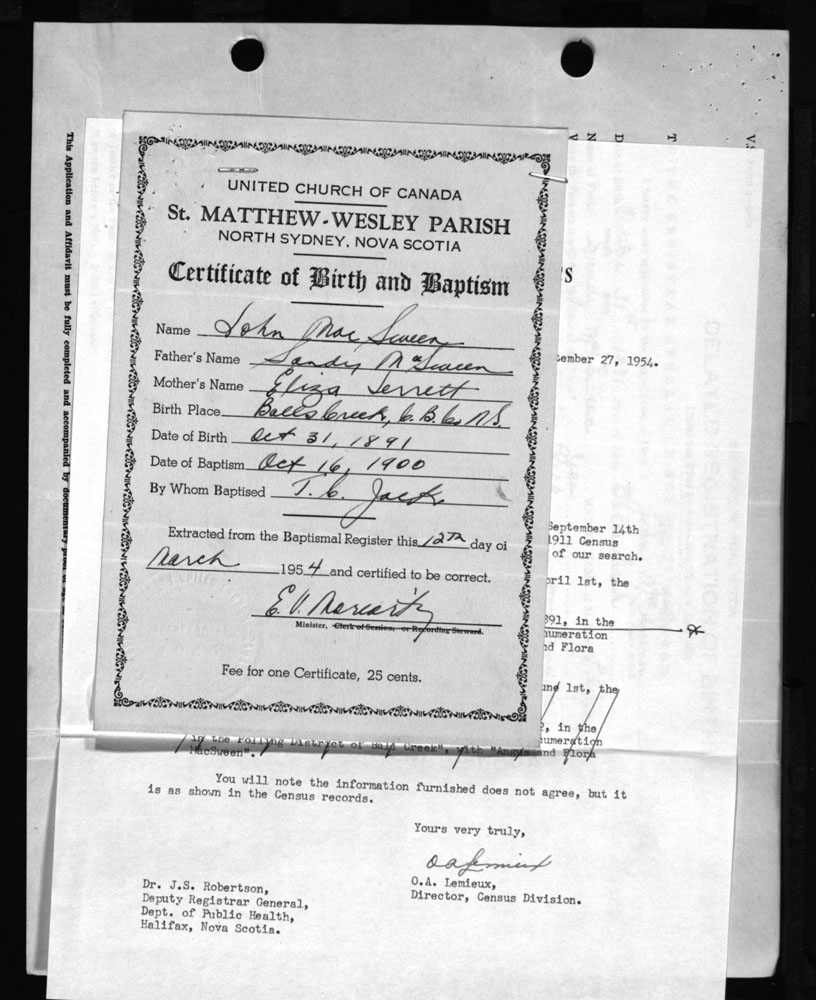 UNITED CHURCH OF CANADA
St. MATTHEW-WESLEY PARISH
NORTH SYDNEY, NOVA SCOTIA
Certificate of Birth and Baptism
Name John MacSween
Father's Name Sandy McSween
Mother's Name Eliza Jerrett
Birth Place Balls Creek, C.B. Co N.S.
Date of Birth Oct 31, 1891
Date of Baptism Oct 16, 1900
By Whom Baptised T. C. Jack
Extracted from the Baptismal Register this 12th day of
March 1954 and certified to be correct.
E. V. Moriarty
Minister, Clerk of Session, or Recording Steward.
Fee for one Certificate, 25 cents.
This Application and Affidavit must be fully completed and accompanied by documentary
S
tember 27, 1954.
September 14th
1911 Census
of our search.
pril 1st, the
891, in the
numeration
nd Flora
une 1st, the
, in the
numeration
in the Polling District of Ball Creek", with "Angus and Flora
MacSween".
You will note the information furnished does not agree, but it
is as shown in the Census records.
Yours very truly,
O A Lemieux
O.A. Lemieux,
Director, Census Division.
Dr. J.S. Robertson,
Deputy Registrar General,
Dept. of Public Health,
Halifax, Nova Scotia.